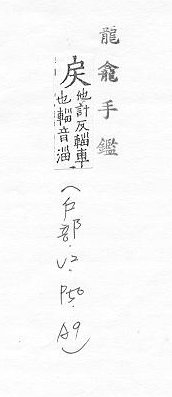 龍龕手鑑
戻
他計反輜車
也輜音淄
(戶部.V2.P50.A9)